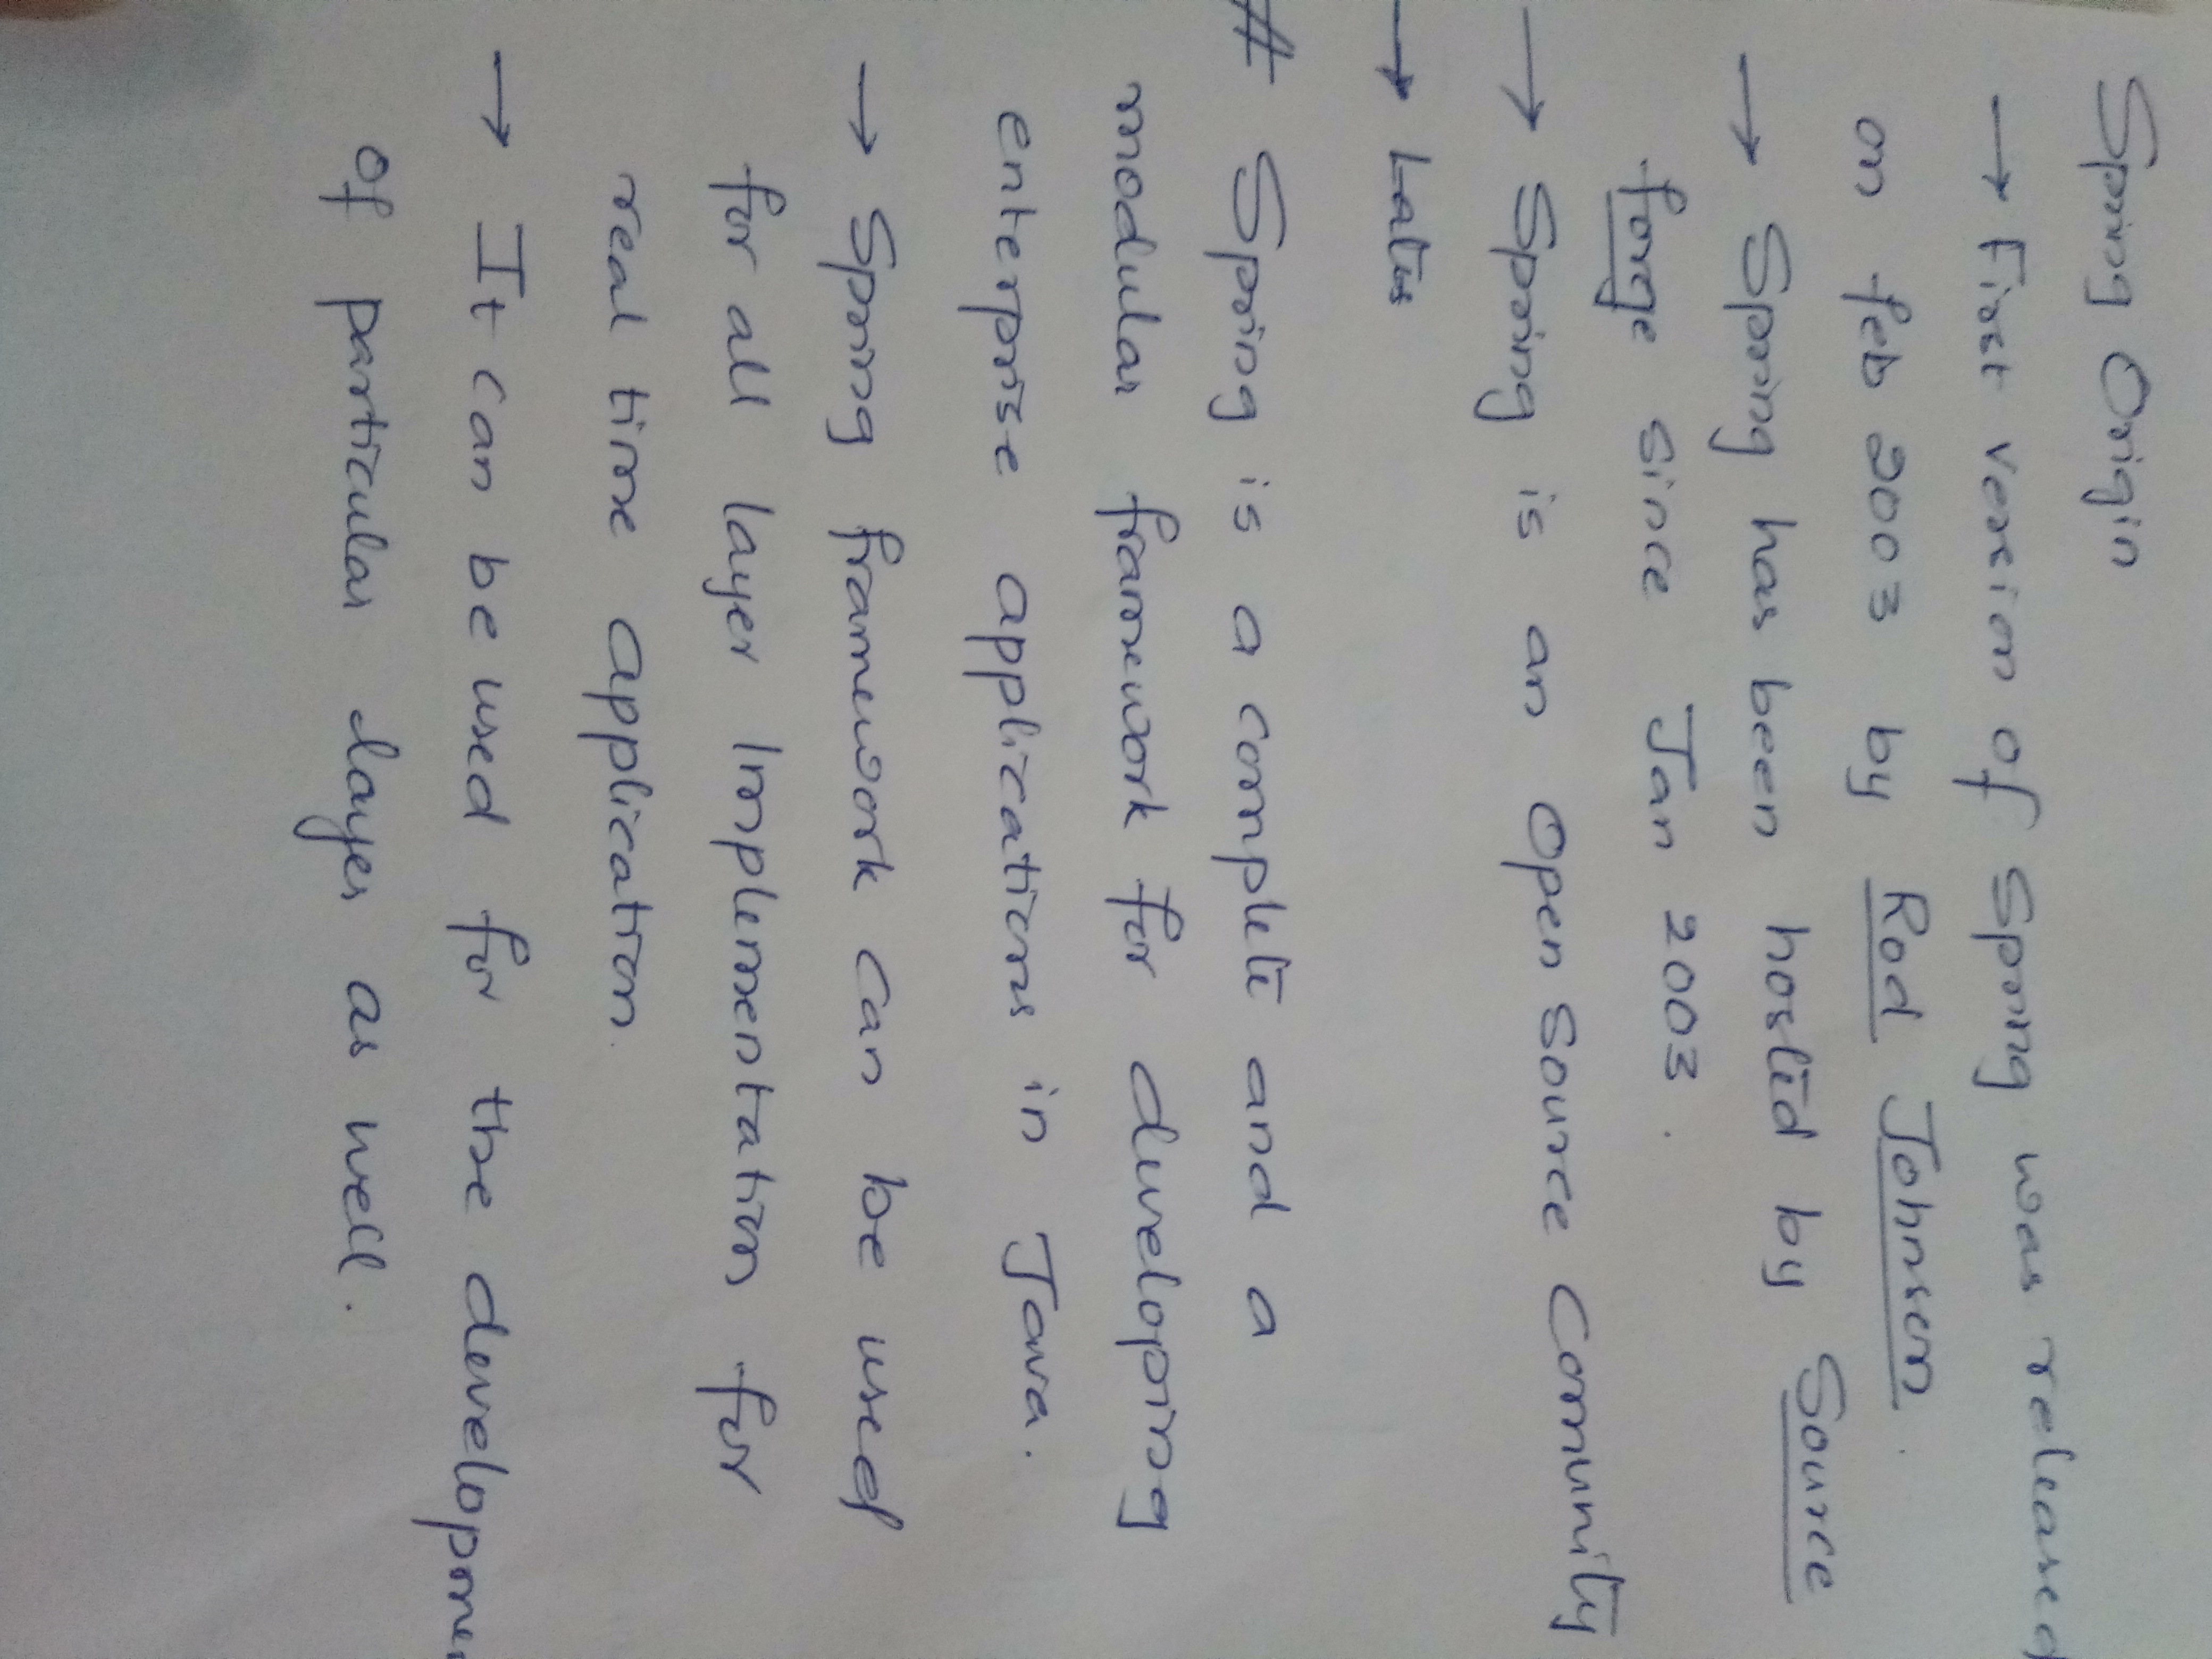 Spring Origin
→ First version of spring was released
on feb 2003 by Rod Johnson.
→ Spring has been hosted by Source
forge since Jan 2003.
→ Spring is an Open source Community
→
# Spring is a complete and a
modular framework for developing
enterprise applications in Java.
→ Spring framework can be used
for all layer Implementation for
real time application.
→ It can be used for the developmen
of particular layer as well.